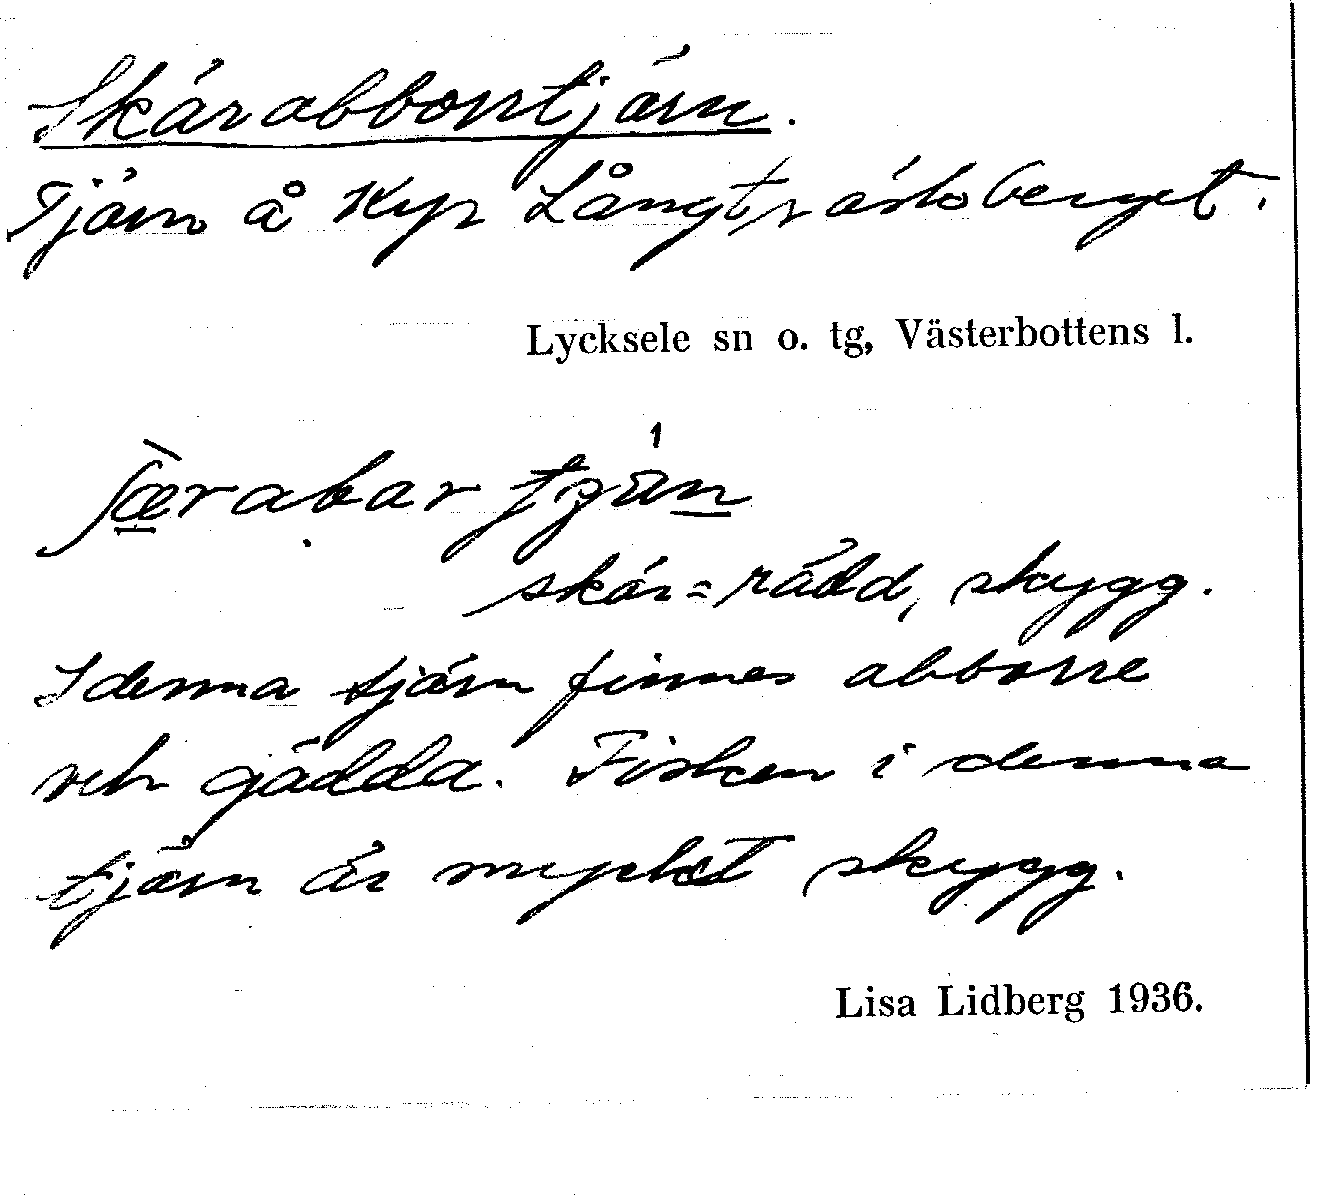 Skärabborrtjärn.
Tjärn å Kyr Långträskberget.
Lycksele sn o. tg, Västerbottens l.
skär = rädd, skygg.
I denna tjärn finnes abborre
och gädda. Fisken i denna
tjärn är mycket skygg.
Lisa Lidberg 1936.